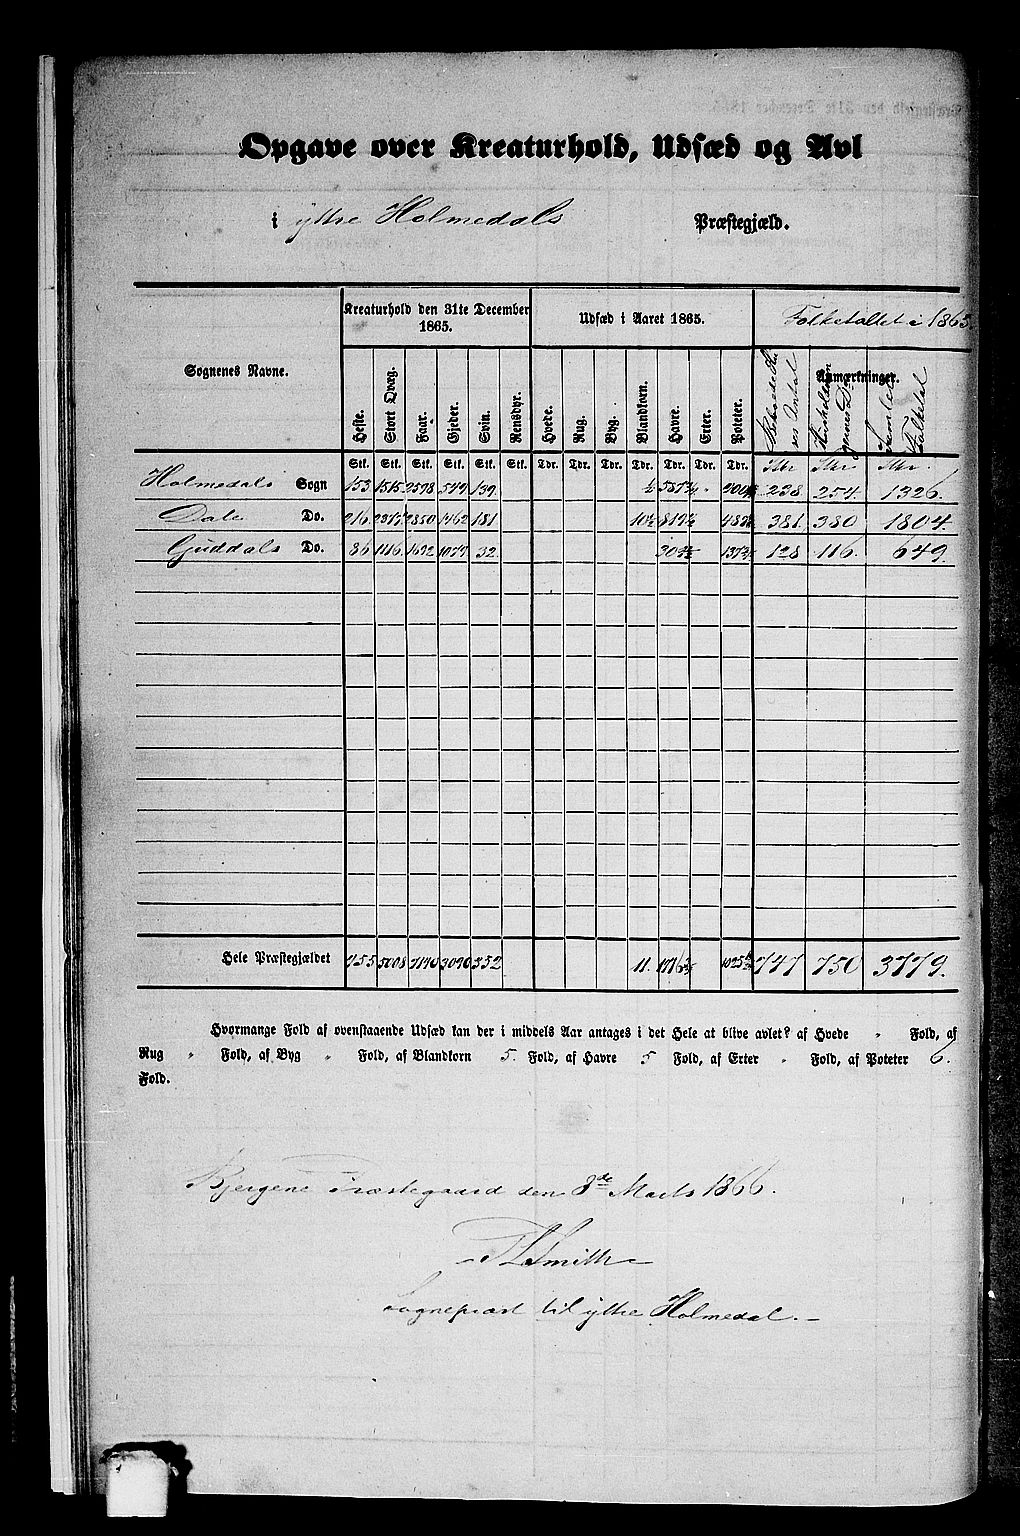 Opgave over Kreaturhold, Udsæd og Avl
i yttre Holmedals Præstegjæld.
Sognenes Navne.
Kreaturhold den 31te December 1865.
Udsæd i Aaret 1865.
Folketallet i 1865.
Anmærkninger.
Heste. Stort Qvæg. Faar. Gjeder. Svin. Rensdyr. Hvede. Rug. Byg. Blandkorn. Havre. Erter. Poteter. Folketal
Stk. Stk. Stk. Stk. Stk. Stk. Tdr. Tdr. Tdr. Tdr. Tdr. Tdr. Tdr.
Holmedals Sogn 153 1515 2598 549 139 238 254 1326
Dale Do. 216 1462 181 381 380 1804
Guddals Do. 86 1116 1692 32 128 116 649
Hele Præstegjældet 455 5008 7140 3090 352 11 747 750 3779
Hvormange Fold af ovenstaaende Udsæd kan der i middels Aar antages i det Hele at blive avlet? af Hvede " Fold, af
Rug " Fold, af Byg " Fold, af Blandkorn 5. Fold, af Havre 5 Fold, af Erter " Fold, af Poteter 6.
Fold.
Præstegaard den 3de Marts 1866.
Smith
Sognepræst til yttre Holmedal.